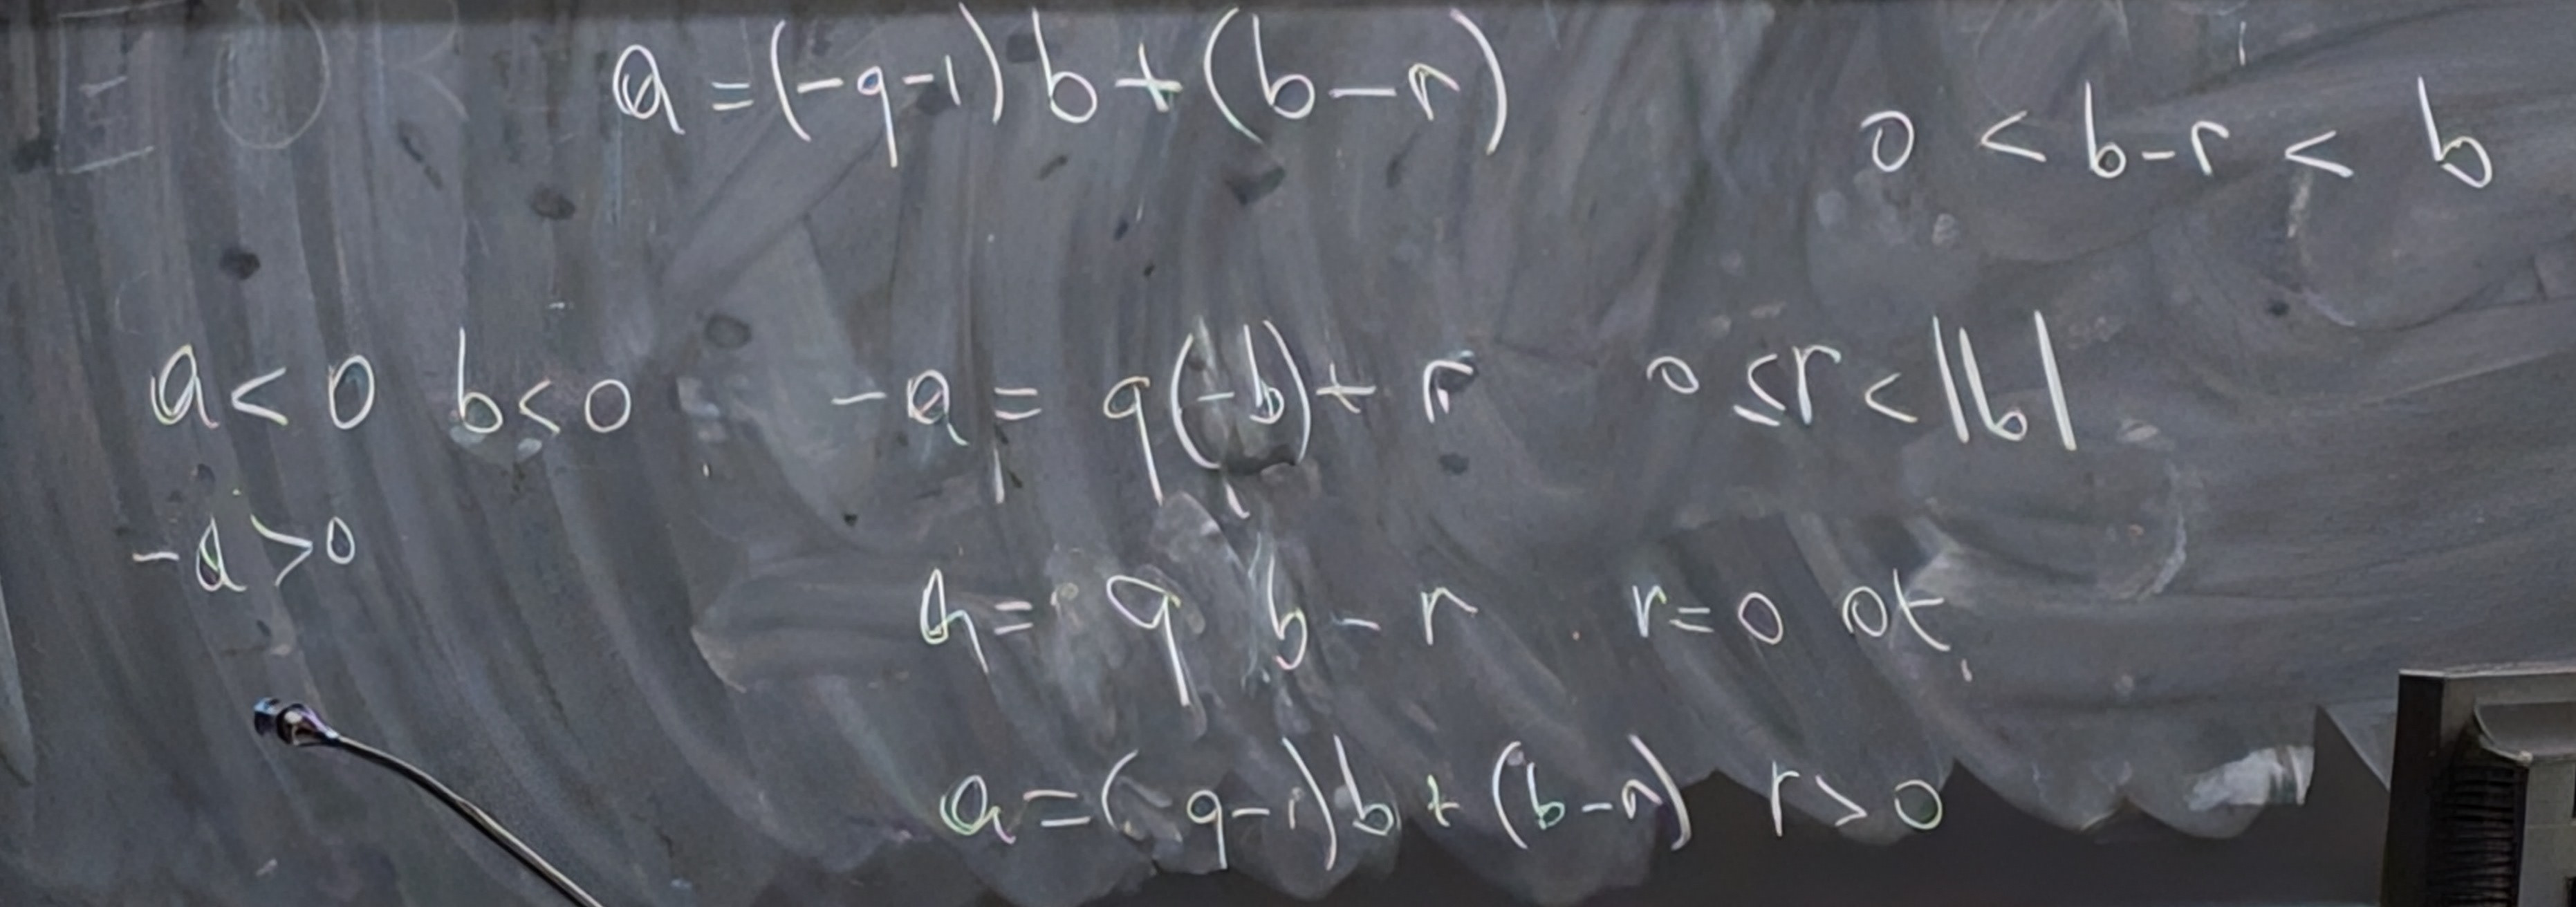 a = (-q-1) b + (b-r) 0 < b-r < b
a < 0 b < 0 -a = q(-b) + r 0 ≤ r < |b|
-a > 0
a = q b - r r = 0 ot
a = (q-1) b + (b-r) r > 0